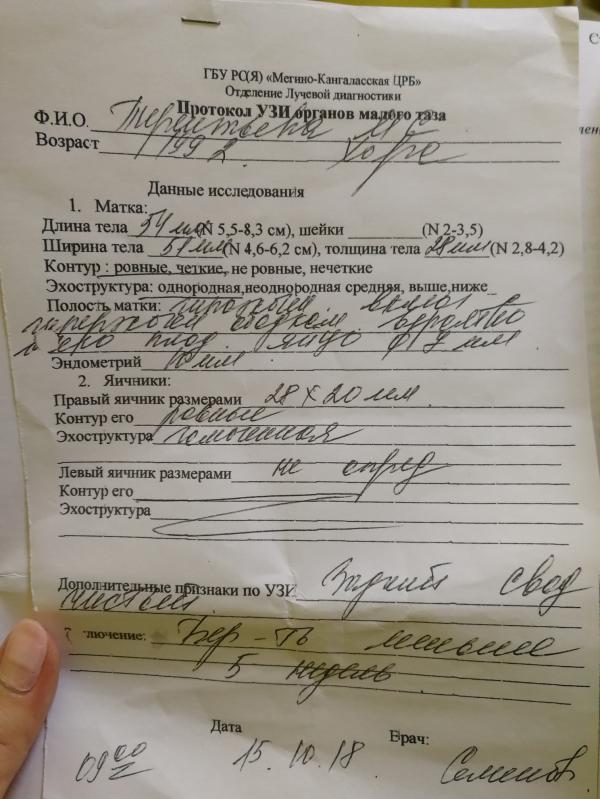 ГБУ РС(Я) «Мегино-Кангаласская ЦРБ»
Отделение Лучевой диагностики
Протокол УЗИ органов малого таза
Ф.И.О.
Возраст 1992 Хара
Данные исследования
1. Матка:
Длина тела 54 мм (N 5,5-8,3 см), шейки (N 2-3,5)
Ширина тела 51 мм (N 4,6-6,2 см), толщина тела 28 мм (N 2,8-4,2)
Контур : ровные, четкие, не ровные, нечеткие
Эхоструктура: однородная,неоднородная средняя, выше,ниже
Полость матки:
плод. яйцо ф 7 мм
Эндометрий 10 мм
2. Яичники:
Правый яичник размерами 28 х 20 мм
Контур его ровные
Эхоструктура
Левый яичник размерами не опред
Контур его
Эхоструктура
Дополнительные признаки по УЗИ Задний свод
чистый
лючение: Бер-ть меньше
5 недель
Дата Врач:
09 00 15.10.18 Семенов